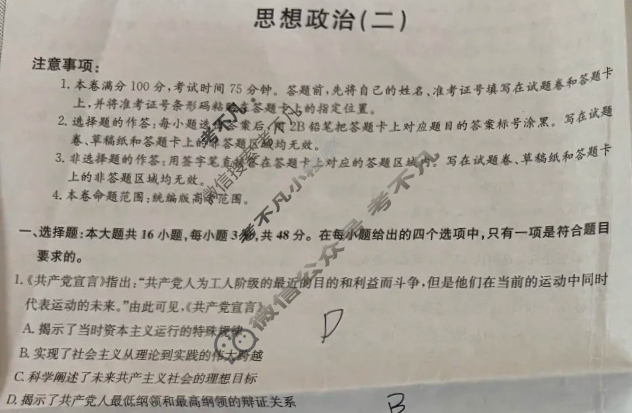 思想政治(二)
注意事项:
1.本卷满分100分,考试时间75分钟。答题前,先将自己的姓名、准考证号填写在试题卷和答题卡
上,并将准考证号条形码粘贴在答题卡上的指定位置。
2.选择题的作答:每小题选出答案后,用2B铅笔把答题卡上对应题目的答案标号涂黑。写在试题
卷、草稿纸和答题卡上的非答题区域均无效。
3.非选择题的作答:用签字笔直接答在答题卡上对应的答题区域内。写在试题卷、草稿纸和答题卡
上的非答题区域均无效。
4.本卷命题范围:统编版高考范围。
一、选择题:本大题共16小题,每小题3分,共48分。在每小题给出的四个选项中,只有一项是符合题目
要求的。
1.《共产党宣言》指出:“共产党人为工人阶级的最近的目的和利益而斗争,但是他们在当前的运动中同时
代表运动的未来。”由此可见,《共产党宣言》
A.揭示了当时资本主义运行的特殊规律
B.实现了社会主义从理论到实践的伟大跨越
C.科学阐述了未来共产主义社会的理想目标
D.揭示了共产党人最低纲领和最高纲领的辩证关系
D
B
微信搜索考不凡
考不凡小程序
微信公众号 考不凡